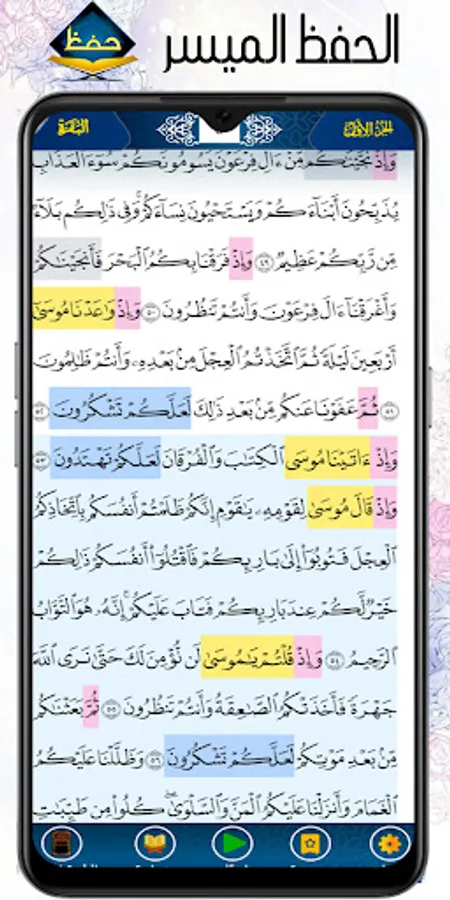 حفظ
الحفظ الميسر
البقرة
الجزء الأول
وَإِذْ نَجَّيْنَٰكُم مِّنْ ءَالِ فِرْعَوْنَ يَسُومُونَكُمْ سُوٓءَ ٱلْعَذَابِ
يُذَبِّحُونَ أَبْنَآءَكُمْ وَيَسْتَحْيُونَ نِسَآءَكُمْ ۚ وَفِى ذَٰلِكُم بَلَآءٌ
مِّن رَّبِّكُمْ عَظِيمٌ ٤٩ وَإِذْ فَرَقْنَا بِكُمُ ٱلْبَحْرَ فَأَنجَيْنَٰكُمْ
وَأَغْرَقْنَآ ءَالَ فِرْعَوْنَ وَأَنتُمْ تَنظُرُونَ ٥٠ وَإِذْ وَٰعَدْنَا مُوسَىٰٓ
أَرْبَعِينَ لَيْلَةً ثُمَّ ٱتَّخَذْتُمُ ٱلْعِجْلَ مِنۢ بَعْدِهِۦ وَأَنتُمْ ظَٰلِمُونَ
٥١ ثُمَّ عَفَوْنَا عَنكُم مِّنۢ بَعْدِ ذَٰلِكَ لَعَلَّكُمْ تَشْكُرُونَ ٥٢
وَإِذْ ءَاتَيْنَا مُوسَى ٱلْكِتَٰبَ وَٱلْفُرْقَانَ لَعَلَّكُمْ تَهْتَدُونَ ٥٣
وَإِذْ قَالَ مُوسَىٰ لِقَوْمِهِۦ يَٰقَوْمِ إِنَّكُمْ ظَلَمْتُمْ أَنفُسَكُم بِٱتِّخَاذِكُمُ
ٱلْعِجْلَ فَتُوبُوٓا۟ إِلَىٰ بَارِئِكُمْ فَٱقْتُلُوٓا۟ أَنفُسَكُمْ ذَٰلِكُمْ
خَيْرٌ لَّكُمْ عِندَ بَارِئِكُمْ فَتَابَ عَلَيْكُمْ ۚ إِنَّهُۥ هُوَ ٱلتَّوَّابُ
ٱلرَّحِيمُ ٥٤ وَإِذْ قُلْتُمْ يَٰمُوسَىٰ لَن نُّؤْمِنَ لَكَ حَتَّىٰ نَرَى ٱللَّهَ
جَهْرَةً فَأَخَذَتْكُمُ ٱلصَّٰعِقَةُ وَأَنتُمْ تَنظُرُونَ ٥٥ ثُمَّ بَعَثْنَٰكُم
مِّنۢ بَعْدِ مَوْتِكُمْ لَعَلَّكُمْ تَشْكُرُونَ ٥٦ وَظَلَّلْنَا عَلَيْكُمُ
ٱلْغَمَامَ وَأَنزَلْنَا عَلَيْكُمُ ٱلْمَنَّ وَٱلسَّلْوَىٰ ۖ كُلُوا۟ مِن طَيِّبَٰتِ